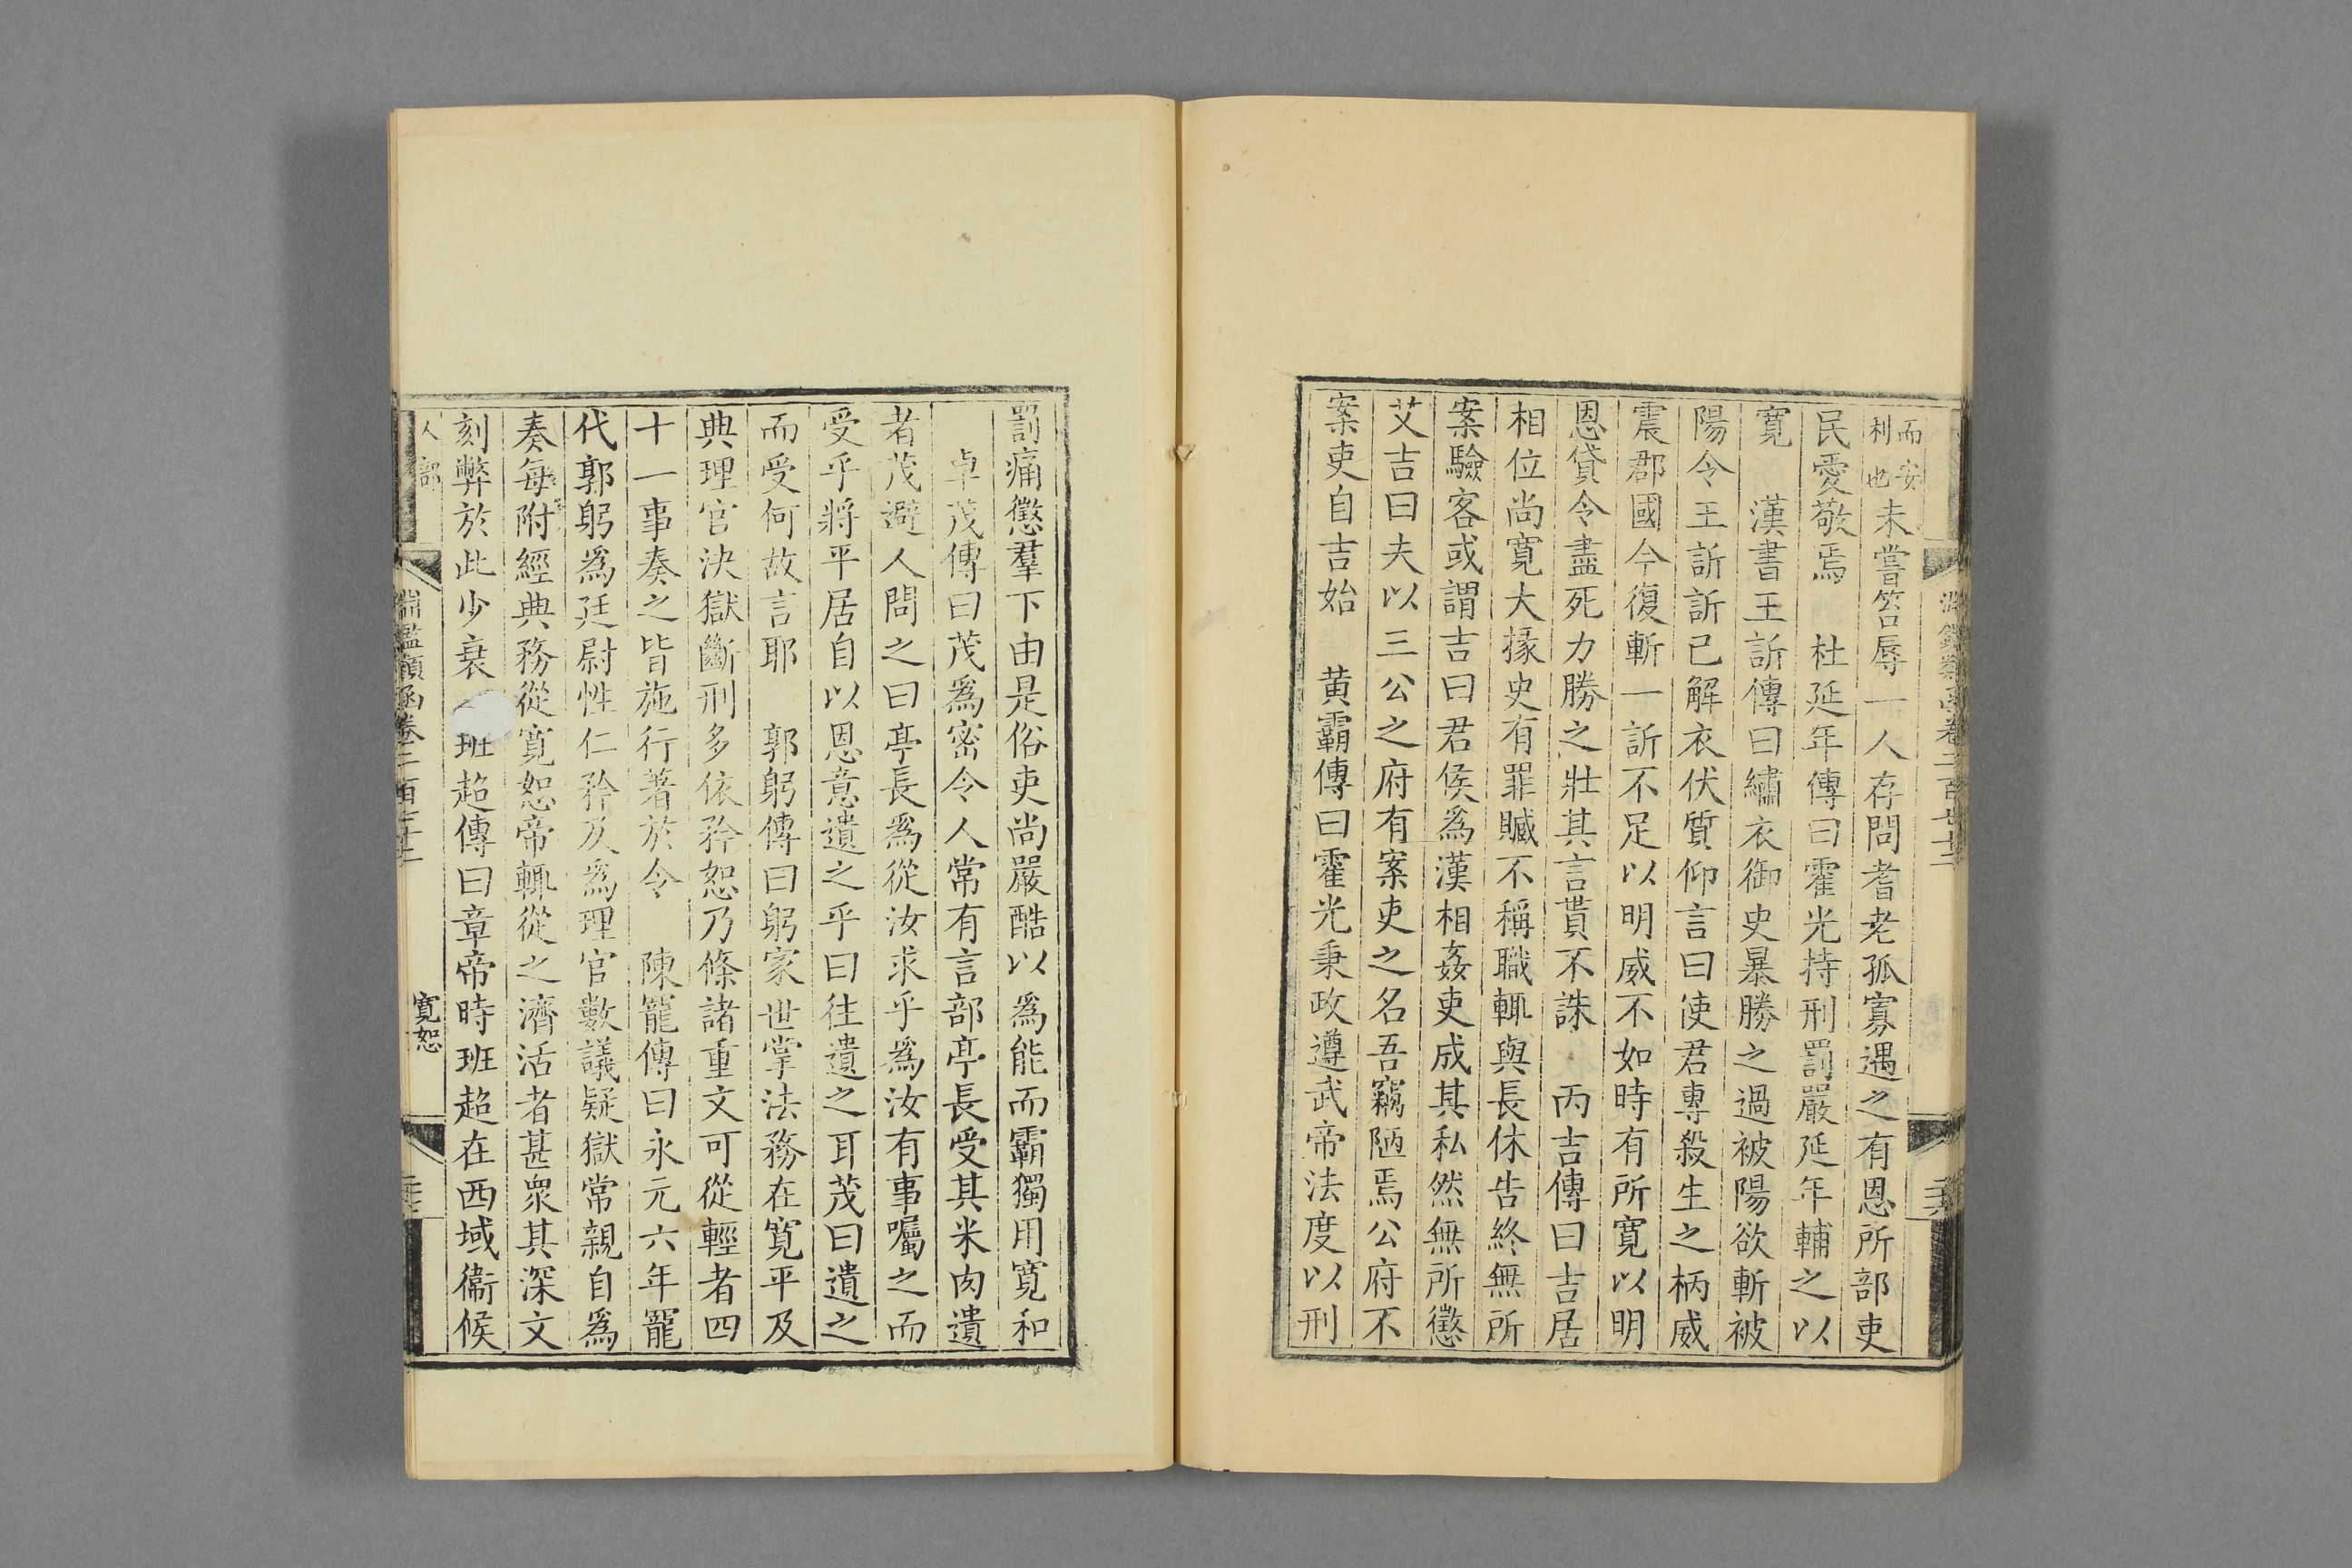 而安利也未嘗笞辱一人存問耆老孤寡遇之有恩所部吏
民愛敬焉　杜延年傳曰霍光持刑罰嚴延年輔之以
寬　漢書王訢傳曰繡衣御史暴勝之過被陽欲斬被
陽令王訢訢已解衣伏質仰言曰使君專殺生之柄威
震郡國今復斬一訢不足以明威不如時有所寬以明
恩貸令盡死力勝之壯其言貰不誅　丙吉傳曰吉居
相位尚寛大掾史有罪贓不稱職輒與長休告終無所
案驗客或謂吉曰君侯爲漢相姦吏成其私然無所懲
艾吉曰夫以三公之府有案吏之名吾竊陋焉公府不
案吏自吉始　黄霸傳曰霍光秉政遵武帝法度以刑
罰痛懲羣下由是俗吏尚嚴酷以爲能而霸獨用寛和
卓茂傳曰茂爲密令人常有言部亭長受其米肉遺
者茂避人問之曰亭長爲從汝求乎爲汝有事囑之而
受乎將平居自以恩意遺之乎曰往遺之耳茂曰遺之
而受何故言耶　郭躬傳曰躬家世掌法務在寛平及
典理官決獄斷刑多依矜恕乃條諸重文可從輕者四
十一事奏之皆施行著於令　陳寵傳曰永元六年寵
代郭躬爲廷尉性仁矜及爲理官數議疑獄常親自爲
奏每附經典務從寛恕帝輒從之濟活者甚衆其深文
刻弊於此少衰　班超傳曰章帝時班超在西域衞候
人部　淵鑑類函卷二百七十二　寛恕